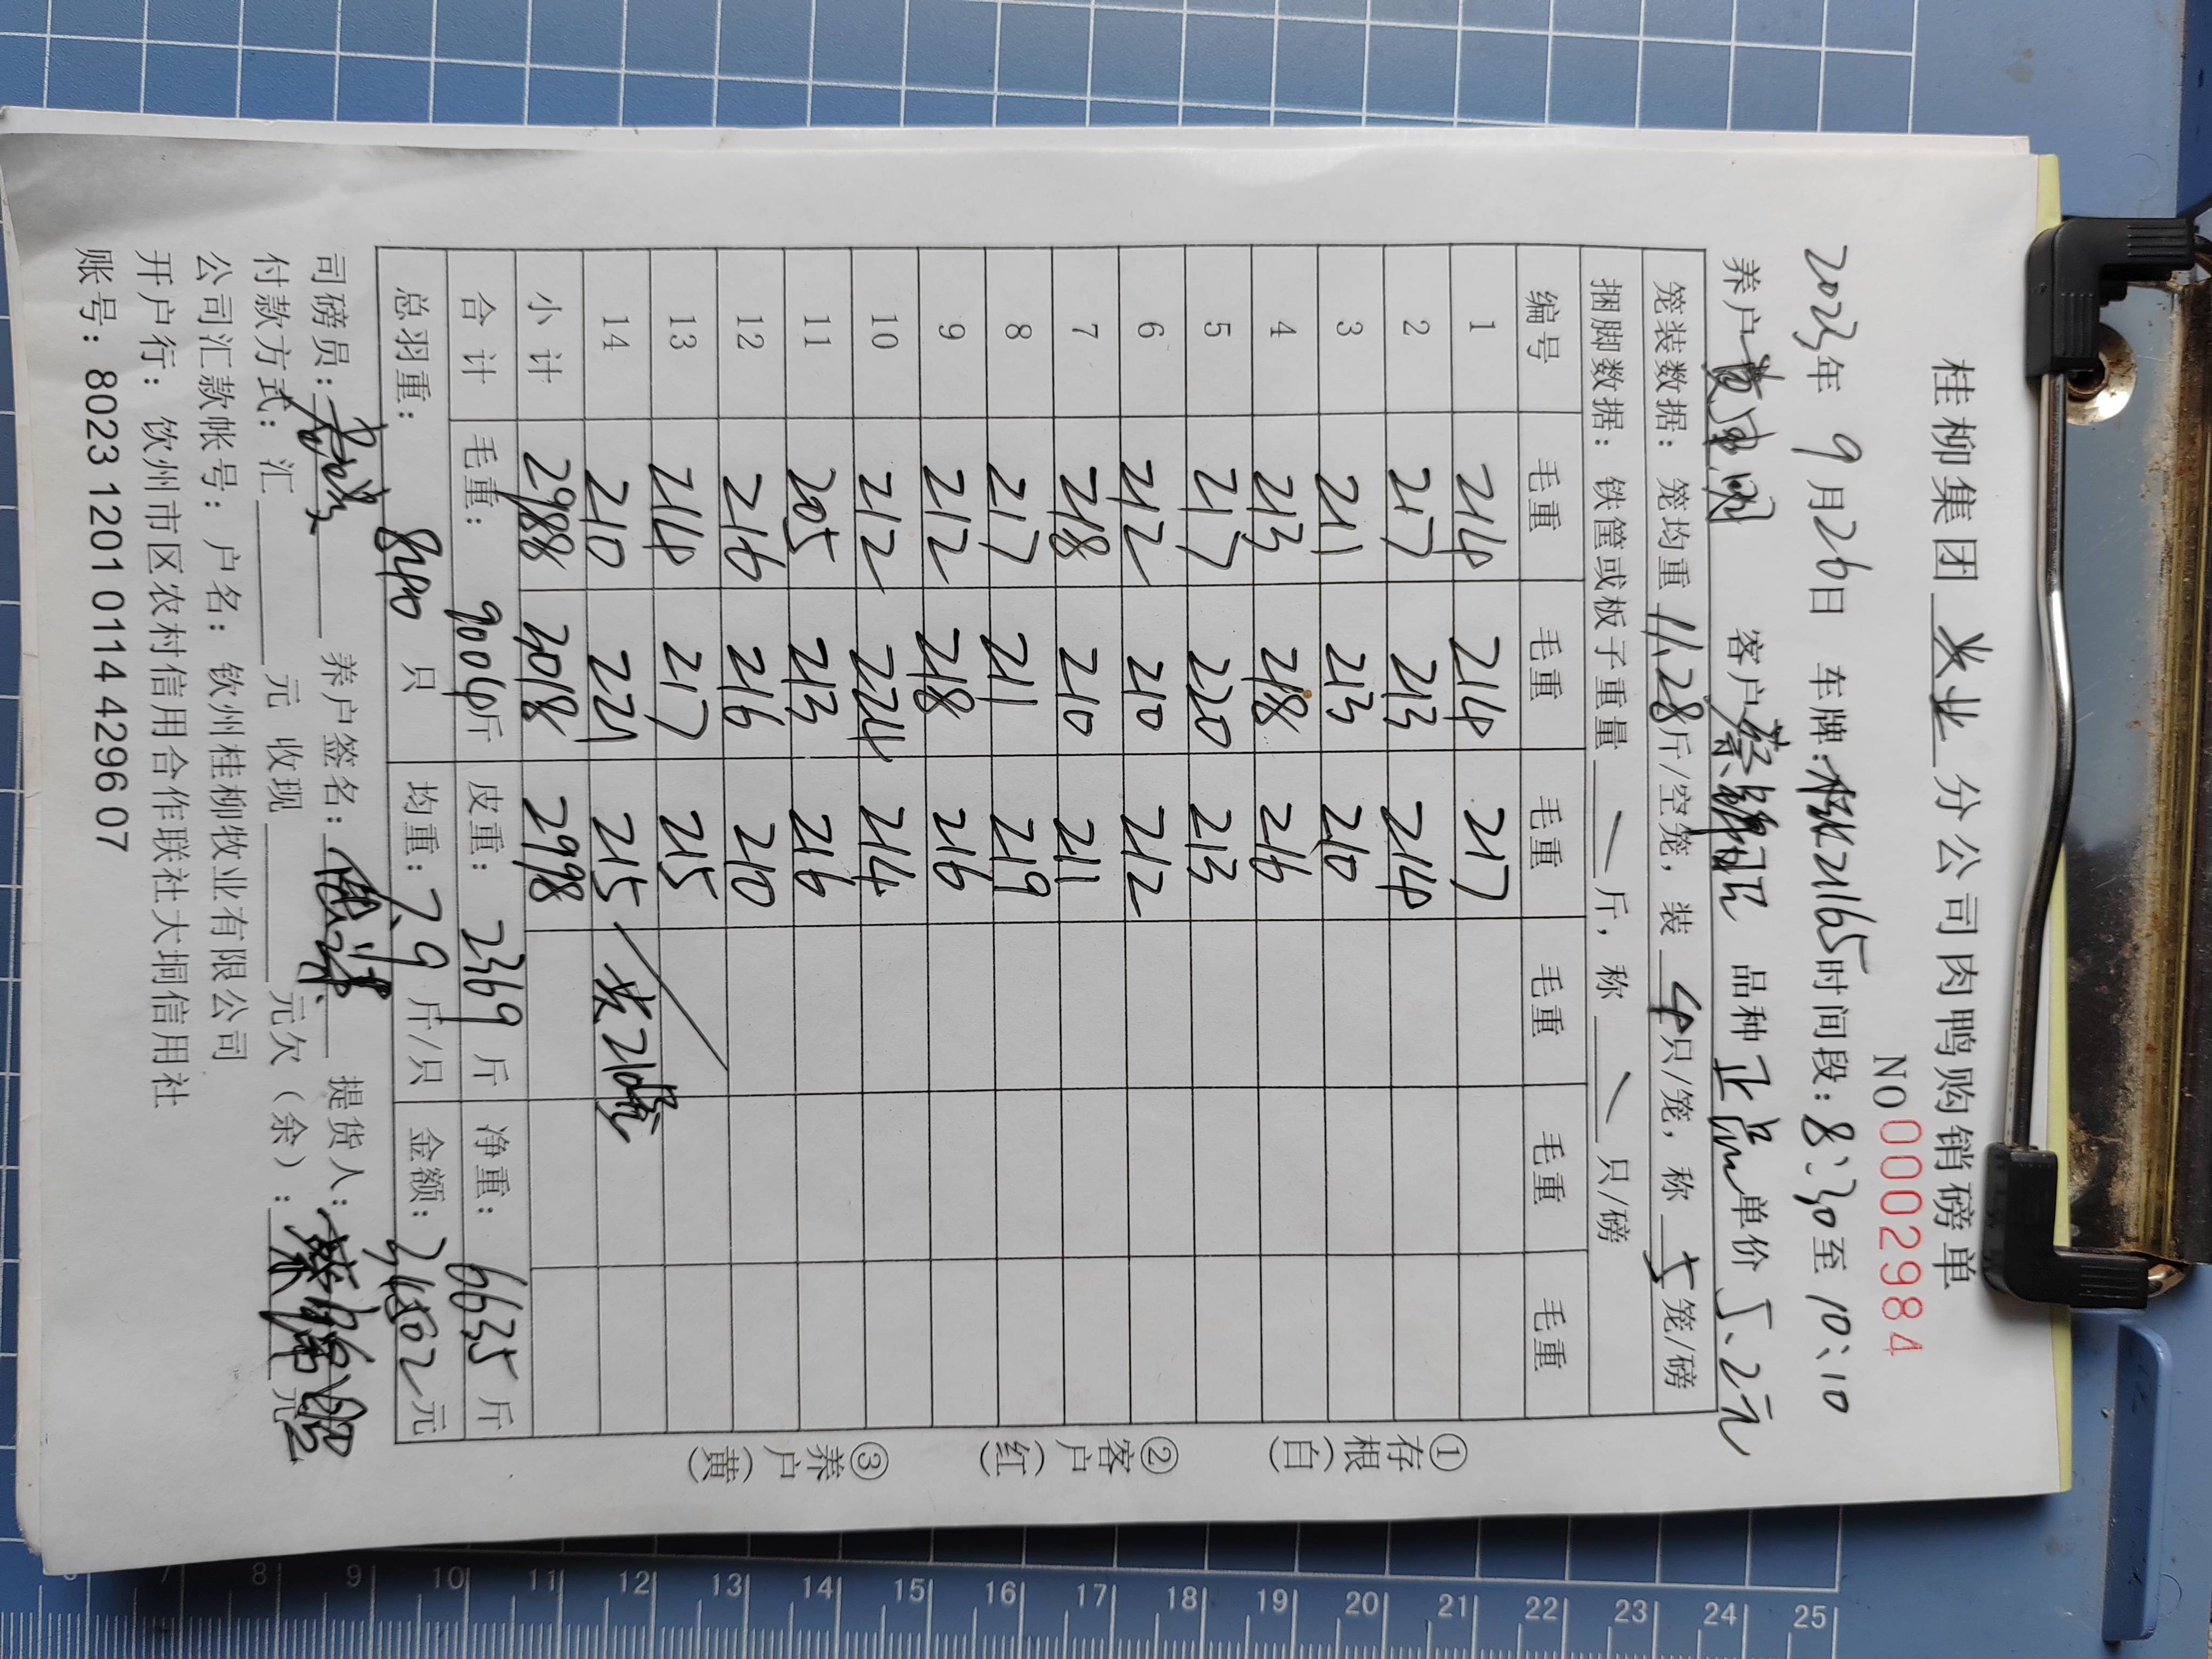 桂柳集团 兴业 分公司肉鸭购销磅单
NO 00002984
2023年 9月26日 车牌:桂K2165 时间段:8:30至10:10
养户 客户 品种 正品 单价 5.2元
笼装数据:笼均重 11.28斤/空笼,装 4只/笼,称 5笼/磅
捆脚数据:铁筐或板子重量 / 斤,称 / 只/磅
编号 毛重 毛重 毛重 毛重 毛重 毛重
1 214 214 217
2 217 213 214
3 211 213 210
4 213 218 216
5 217 220 213
6 212 210 212
7 218 210 211
8 217 211 219
9 212 218 216
10 212 224 214
11 205 213 216
12 216 216 210
13 214 217 215
14 210 221 215 共210笼
小计 2988 3018 2998
合计 毛重: 9004斤 皮重: 2369 斤 净重: 6635 斤
总羽重: 840 只 均重: 7.9 斤/只 金额: 34502元
司磅员: 养户签名: 提货人:
付款方式:汇 元 收现 元欠(余): 元
公司汇款帐号:户名:钦州桂柳牧业有限公司
开户行:钦州市区农村信用合作联社大垌信用社
账号:8023 1201 0114 4296 07
①存根(白) ②客户(红) ③养户(黄)
6 7 8 9 10 11 12 13 14 15 16 17 18 19 20 21 22 23 24 25